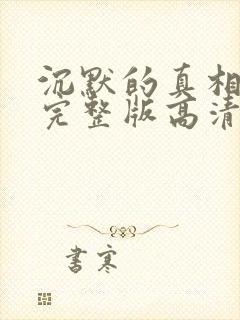 沉默的真相
完整版高清
書寒